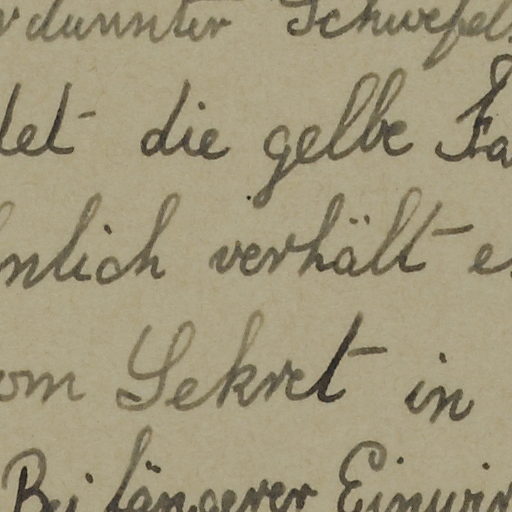 rdünnter Schwefel
det die gelbe Fa
hnlich verhält es
om Sekret in
Bei längerer Einwir